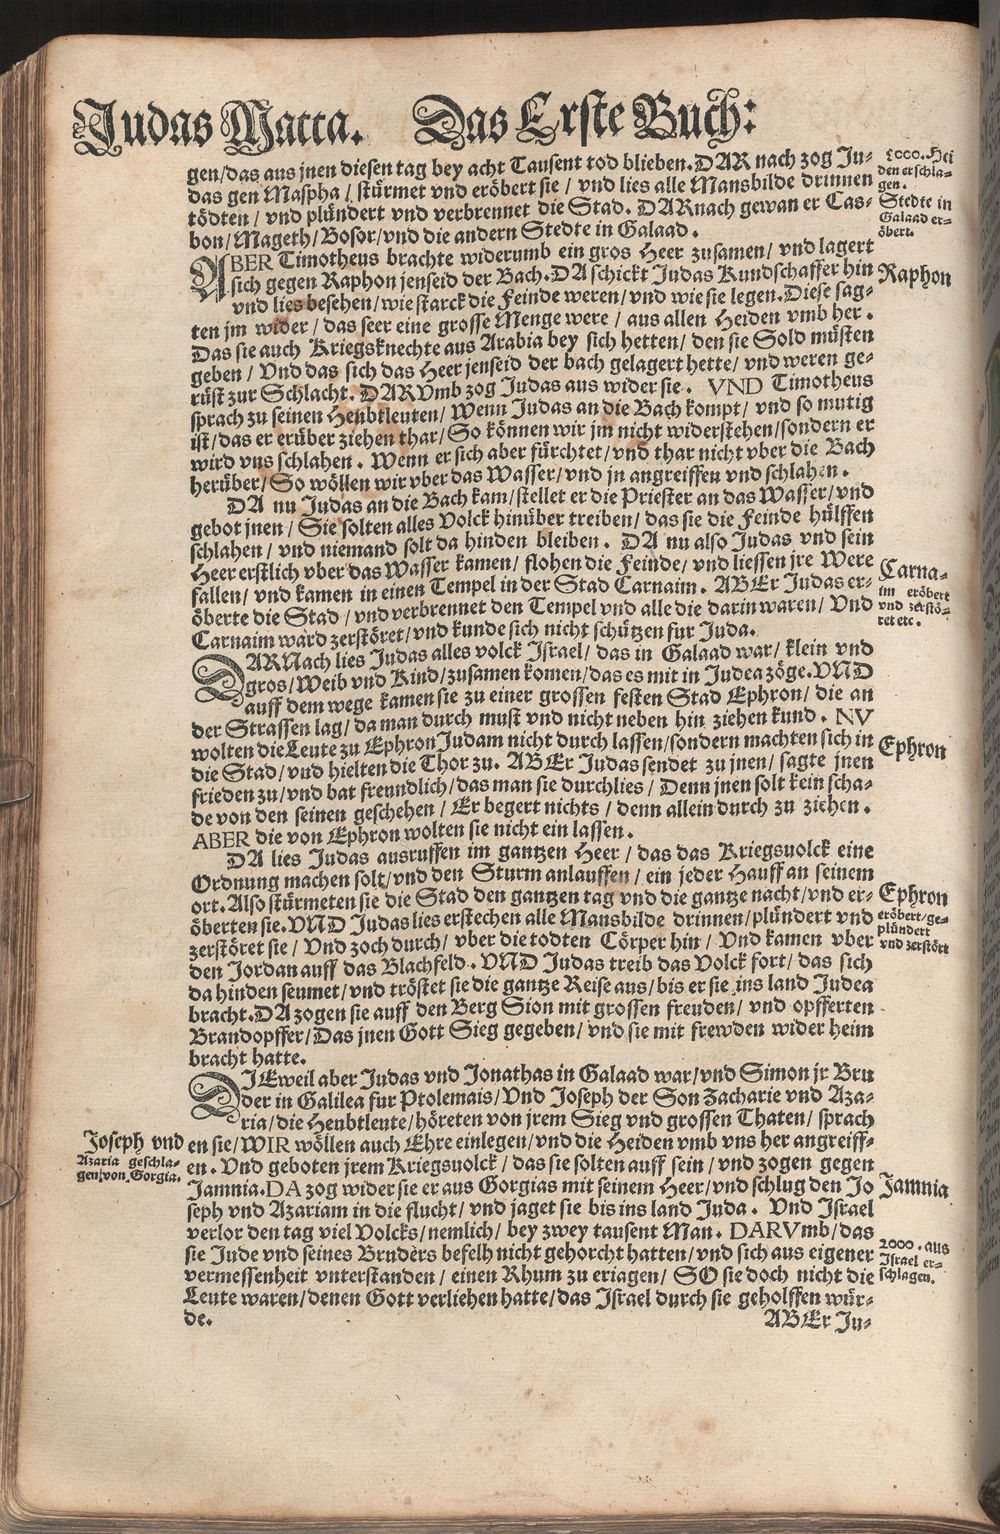 Judas Macca. Das Erste Buch:
gen/das aus jnen diesen tag bey acht Tausent tod blieben. DAR nach zog Ju-
das gen Maspha / stürmet vnd eröbert sie / vnd lies alle Mansbilde drinnen
tödten / vnd plündert vnd verbrennet die Stad. DARnach gewan er Cas-
bon/Mageth/Bosor/vnd die andern Stedte in Galaad.
den erschla-
gen.
Stedte in
Galaad er-
öbert.
ABER Timotheus brachte widerumb ein gros Heer zusamen/ vnd lagert
sich gegen Raphon jenseid der Bach. DA schickt Judas Kundschaffer hin
vnd lies besehen/ wie starck die Feinde weren/ vnd wie sie legen. Diese sag-
ten jm wider / das seer eine grosse Menge were / aus allen Heiden vmb her.
Das sie auch Kriegsknechte aus Arabia bey sich hetten/ den sie Sold müsten
geben / Vnd das sich das Heer jenseid der bach gelagert hette/ vnd weren ge-
rüst zur Schlacht. DARVmb zog Judas aus wider sie. VND Timotheus
sprach zu seinen Heubtleuten/ Wenn Judas an die Bach kompt/ vnd so mutig
ist/das er erüber ziehen thar/So können wir jm nicht widerstehen/sondern er
wird vns schlahen. Wenn er sich aber fürchtet/vnd thar nicht vber die Bach
herüber/ So wöllen wir vber das Wasser/vnd jn angreiffen vnd schlahen.
Raphon
DA nu Judas an die Bach kam/stellet er die Priester an das Wasser/vnd
gebot jnen / Sie solten alles Volck hinüber treiben/ das sie die Feinde hülffen
schlahen / vnd niemand solt da hinden bleiben. DA nu also Judas vnd sein
Heer erstlich vber das Wasser kamen/ flohen die Feinde/ vnd liessen jre Were
fallen/ vnd kamen in einen Tempel in der Stad Carnaim. ABEr Judas er-
öberte die Stad / vnd verbrennet den Tempel vnd alle die darin waren/ Vnd
Carnaim ward zerstöret/vnd kunde sich nicht schützen fur Juda.
Carna-
im eröbert
vnd zerstö-
ret etc.
DARNach lies Judas alles volck Israel/ das in Galaad war/ klein vnd
gros/Weib vnd Kind/zusamen komen/das es mit in Judea zöge. VND
auff dem wege kamen sie zu einer grossen festen Stad Ephron/ die an
der Strassen lag/ da man durch must vnd nicht neben hin ziehen kund. NV
wolten die Leute zu Ephron Judam nicht durch lassen/sondern machten sich in
die Stad/ vnd hielten die Thor zu. ABEr Judas sendet zu jnen/ sagte jnen
frieden zu/vnd bat freundlich/das man sie durchlies / Denn jnen solt kein scha-
de von den seinen geschehen / Er begert nichts / denn allein durch zu ziehen.
ABER die von Ephron wolten sie nicht ein lassen.
Ephron
DA lies Judas ausruffen im gantzen Heer / das das Kriegsuolck eine
Ordnung machen solt/vnd den Sturm anlauffen / ein jeder Hauff an seinem
ort. Also stürmeten sie die Stad den gantzen tag vnd die gantze nacht/vnd er-
öberten sie. VND Judas lies erstechen alle Mansbilde drinnen/plündert vnd
zerstöret sie / Vnd zoch durch/ vber die todten Cörper hin / Vnd kamen vber
den Jordan auff das Blachfeld. VND Judas treib das Volck fort/ das sich
da hinden seumet/vnd tröstet sie die gantze Reise aus/ bis er sie ins land Judea
bracht. DA zogen sie auff den Berg Sion mit grossen freuden/ vnd opfferten
Brandopffer/Das jnen Gott Sieg gegeben/ vnd sie mit frewden wider heim
bracht hatte.
Ephron
eröbert/ge-
plündert
vnd zerstört
DIEweil aber Judas vnd Jonathas in Galaad war/vnd Simon jr Bru
der in Galilea fur Ptolemais/ Vnd Joseph der Son Zacharie vnd Aza-
ria/die Heubtleute/höreten von jrem Sieg vnd grossen Thaten/ sprach
en sie/WIR wöllen auch Ehre einlegen/vnd die Heiden vmb vns her angreiff-
en. Vnd geboten jrem Kriegsuolck / das sie solten auff sein / vnd zogen gegen
Jamnia. DA zog wider sie er aus Gorgias mit seinem Heer/vnd schlug den Jo
seph vnd Azariam in die flucht/ vnd jaget sie bis ins land Juda. Vnd Israel
verlor den tag viel Volcks/nemlich/ bey zwey tausent Man. DARVmb/das
sie Jude vnd seines Bruders befelh nicht gehorcht hatten/vnd sich aus eigener
vermessenheit vnterstanden / einen Rhum zu eriagen/ SO sie doch nicht die
Leute waren/denen Gott verliehen hatte/das Israel durch sie geholffen wür-
de.
Joseph vnd
Azaria geschla-
gen von Gorgia.
Jamnia
2000. aus
Israel er-
schlagen.
ABEr Ju-